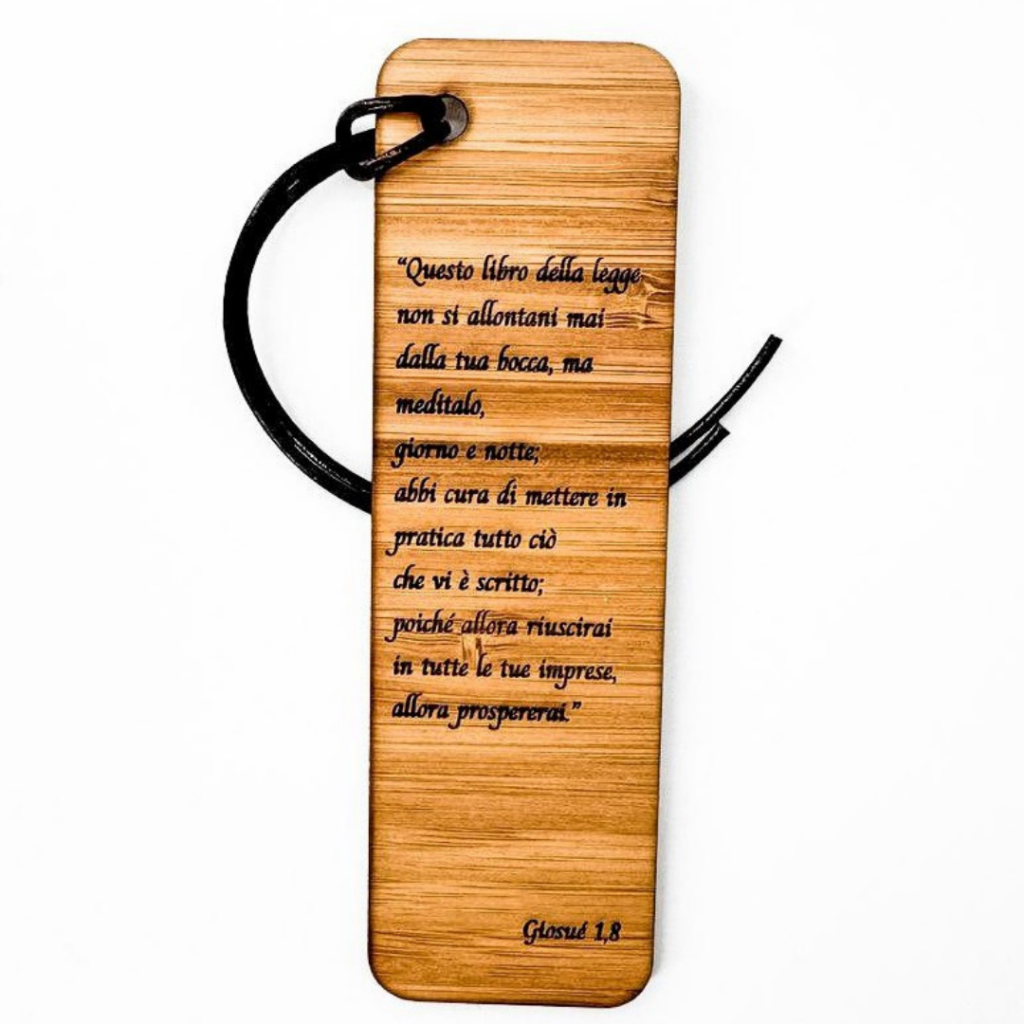 “Questo libro della legge
non si allontani mai
dalla tua bocca, ma
meditalo,
giorno e notte;
abbi cura di mettere in
pratica tutto ciò
che vi è scritto;
poiché allora riuscirai
in tutte le tue imprese,
allora prospererai.”
Giosué 1,8